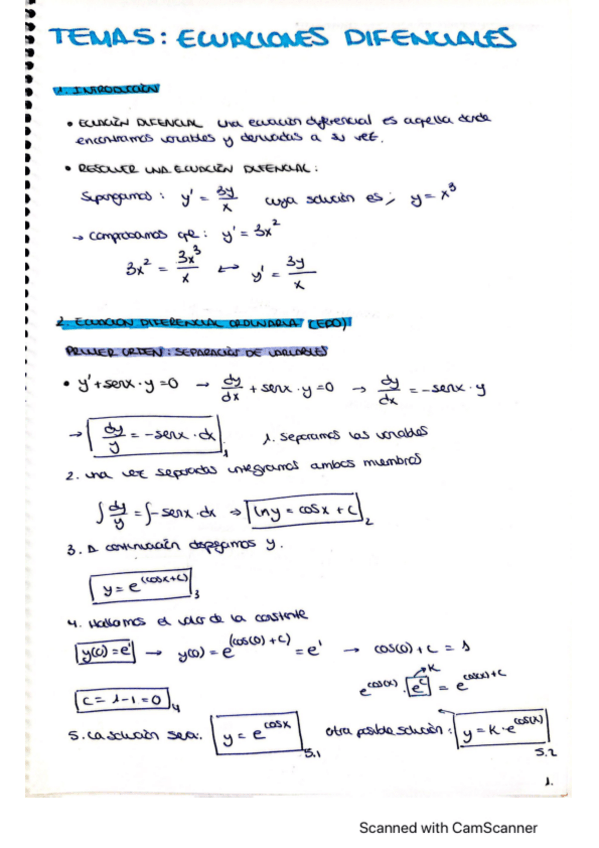 TEMA 5: ECUACIONES DIFENCIALES
1. INTRODUCCIÓN
• ECUACIÓN DIFENCIAL una ecuación diferencial es aquella donde
encontramos variables y derivadas a su vez.
• RESOLVER UNA ECUACIÓN DIFENCIAL:
Supongamos: y' = 3y/x cuya solución es; y = x³
→ Comprobamos que: y' = 3x²
3x² = 3x³/x ↔ y' = 3y/x
2. ECUACION DIFERENCIAL ORDINARIA (EDO)
PRIMER ORDEN: SEPARACIÓN DE VARIABLES
• y' + senx · y = 0 → dy/dx + senx · y = 0 → dy/dx = -senx · y
→ dy/y = -senx · dx 1 1. Separamos las variables
2. una vez separadas integramos ambos miembros
∫ dy/y = ∫ -senx · dx ⇒ ln y = cosx + C 2
3. A continuación despejamos y.
y = e^(cosx+C) 3
4. Hallamos el valor de la constante
y(0) = e¹ → y(0) = e^(cos(0)+C) = e¹ → cos(0) + C = 1
e^cos(x) · e^C = e^cos(x)+C → K
C = 1-1 = 0 4
5. La solución sera: y = e^cosx 5.1 otra posible solución: y = K · e^cos(x) 5.2
1.
Scanned with CamScanner